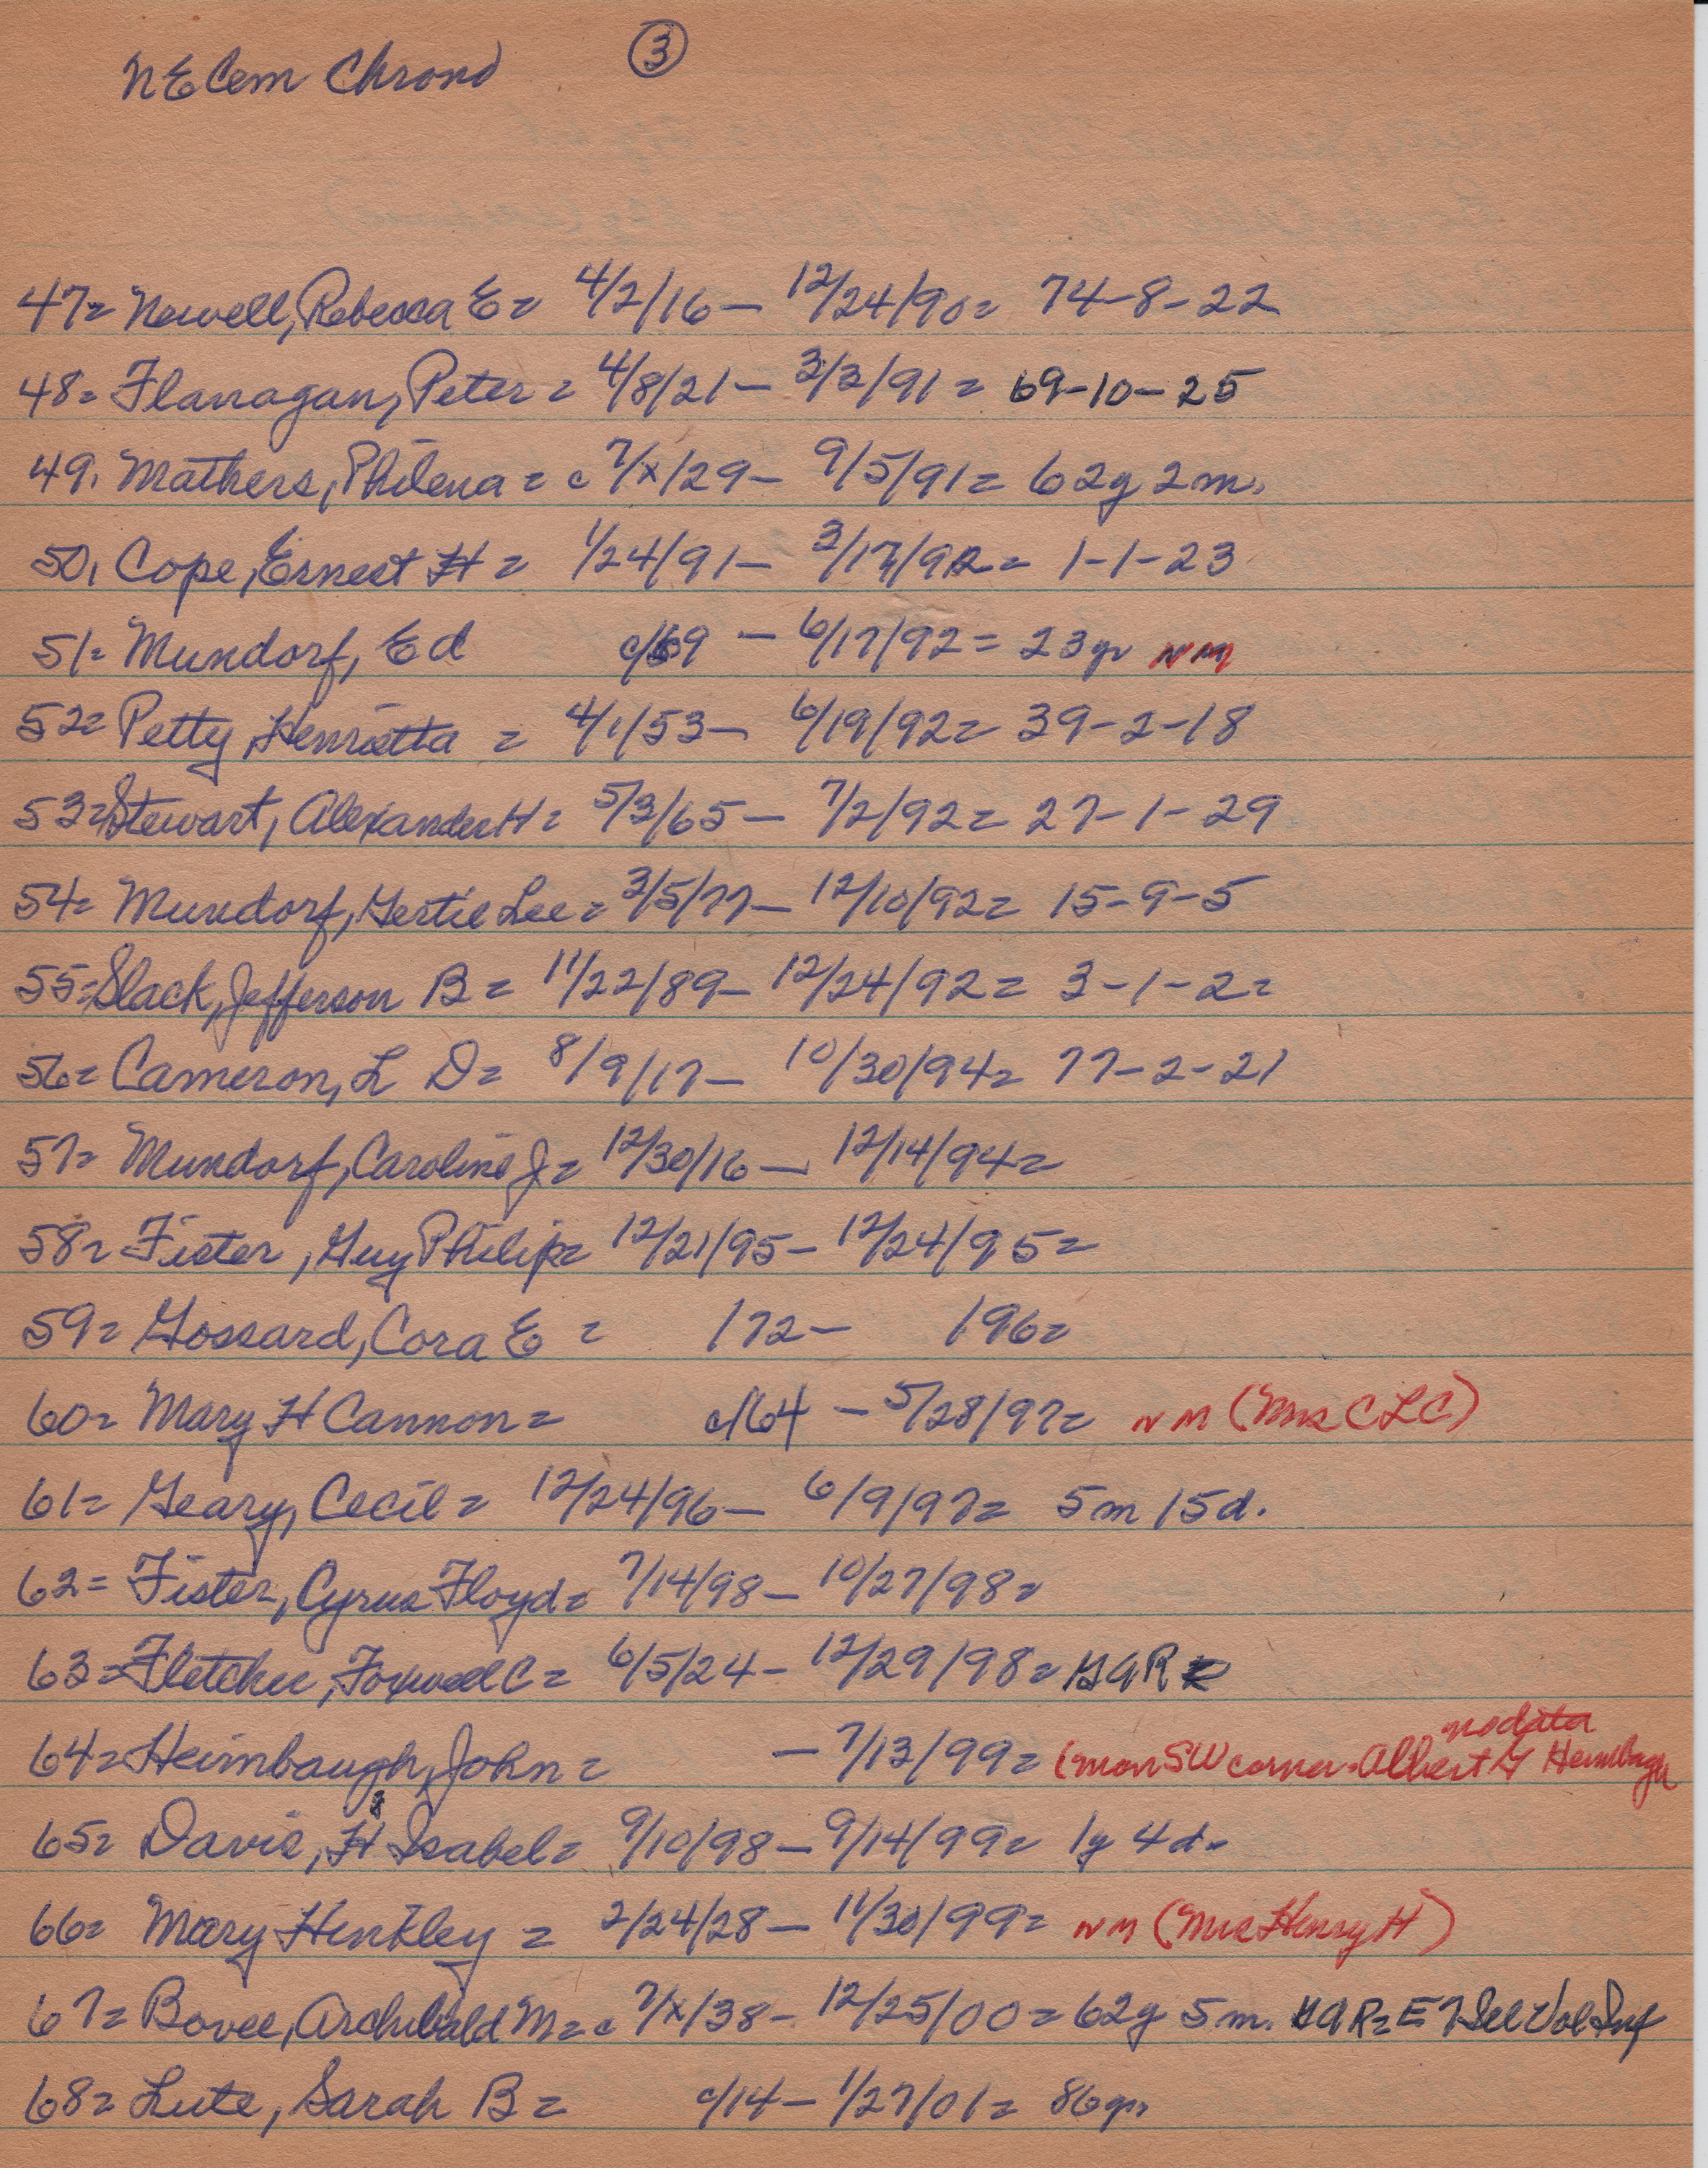 NE Cem Chrono ③
47= Newell, Rebecca E= 4/2/16 — 12/24/90= 74-8-22
48= Flanagan, Peter = 4/8/21 — 3/3/91 = 69-10-25
49. Mathers, Philena = c 7/x/29 — 9/5/91 = 62y 2m.
50. Cope, Ernest H = 1/24/91 — 3/17/92 = 1-1-23
51= Mundorf, Ed c/69 — 6/17/92 = 23yr NM
52= Petty, Henrietta = 4/1/53 — 6/19/92= 39-2-18
53= Stewart, Alexander H= 5/3/65 — 7/2/92 = 27-1-29
54= Mundorf, Gertie Lee = 3/5/77 — 12/10/92= 15-9-5
55= Slack, Jefferson B = 11/22/89 — 12/24/92 = 3-1-2=
56= Cameron, L D= 8/9/17 — 10/30/94= 77-2-21
57= Mundorf, Caroline J= 12/30/16 — 12/14/94=
58= Fister, Guy Philip= 12/21/95 — 12/24/95=
59= Gossard, Cora E = 172 — 196=
60= Mary H Cannon = c/64 — 5/28/97= NM (Mrs C L C)
61= Geary, Cecil = 12/24/96 — 6/9/97= 5m 15d.
62= Fister, Cyrus Floyd= 7/14/98 — 10/27/98=
63= Fletcher, Foxwell C = 6/5/24 — 12/29/98= GAR
no data
64= Heimbaugh, John = — 7/13/99= (mon SW corner. Albert G Heimbaugh
65= Davis, H Isabel= 9/10/98 — 9/14/99= 1y 4d.
66= Mary Henkley = 2/24/28 — 11/30/99= NM (Mrs Henry H)
67= Bovee, Archibald M= c 7/x/38 — 12/25/00= 62y 5m. GAR= E 7 Vol Inf
68= Lute, Sarah B = c/14 — 1/27/01 = 86yr.